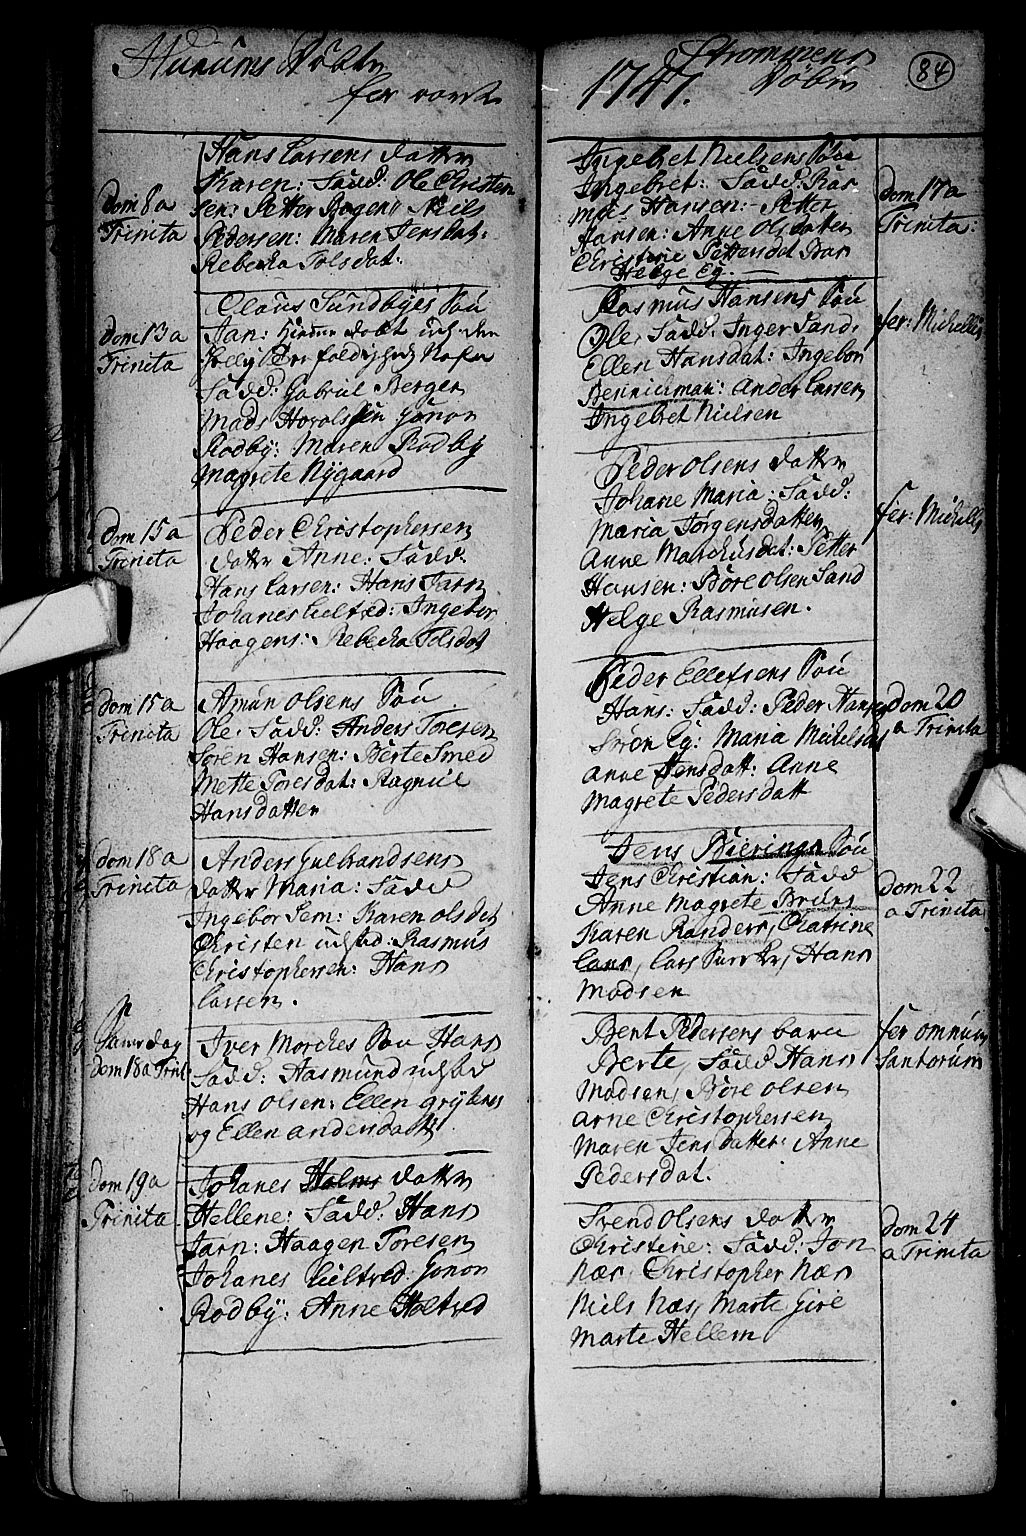 Hurums Döbte
for
dom 8 a
Trinita
Hans Larsens datter
Karen: Fadd: Ole Christen
sen: Petter Bogen Niels
Pedersen: Maren Jensdat:
Rebecka Tolsdat:
dom 13 a
Trinita
Claus Sundbyes Søn
Jan: hieme döbt
Fadd: Gabriel Berger
Mads
Rodby: Maren Rodby
Magrete Nygaard
dom 15 a
Trinita
Peder Christophersen
datter Anne: Fadd
Hans Larsen: Hans Tarn
Johanes Ingebor
Haagens: Rebecka Tolsdat
dom 15 a
Trinita
Amun Olsens Søn
Ole, Fadd: Anders Toresen
Sören Hansen: Berte Smed
Mette Toresdat: Ragnile
Hansdatter
dom 18 a
Trinita
Anders Gulbrandsens
datter Maria: Fadd
Ingebor Sem: Karen olsdat
Christen Rasmus
Christophersen: Hans
Larsen.
dom 18 a Trinit
Iver Morches Søn Hans
Fadd: Aasmund
Hans Olsen: Ellen
og Ellen andersdatt
dom 19 a
Trinita
Johanes Holms datter
Hellene: Fadd: Hans
Tarn: Haagen Toresen
Johanes
Rodby: Anne Holtred
Strommens
1747. Döbte
84
Ingebret Nielsens Søn
Ingebret: Fadd: Ras
mus Hansen: Petter
Hansen: Anne Olsdatter
Christine Pettersdat
Helge Eg.
dom 17 a
Trinita:
Rasmus Hansens Søn
Ole, Fadd: Inger Sand:
Ellen Hansdat: Ingebor
Ander Larsen
Ingebret Nielsen
fer: Michelis
Peder Olsens datter
Johane Maria: Fadd:
Maria Jörgensdatter
Anne Marchusdat: Petter
Hansen: Böre Olsen Sand
Helge Rasmusen.
fer: Michelis
Peder Ellefsens Søn
Hans: Fadd: Peder Hansen
Eg: Maria Michelsdat
Anne Jensdatt: Anne
Magrete Pedersdatt
dom 20
a Trinita
Jens Bierings Søn
Jens Christian: Fadd
Anne Magrete Bruns
Karen Randers, Chatrine
Lars Hans
Madsen
dom 22
a Trinita
Bent Pedersens barn
Berte, Fadd Hans
Madsen, Böre Olsen
Arne Christophersen
Maren Jensdatter: Anne
Pedersdat.
fer omnium
Santorum
Svend Olsens datter
Christine: Fadd: Jon
Næs, Christopher Næs
Niels Næs, Marte Gire
Marte Hellem
dom 24
a Trinita